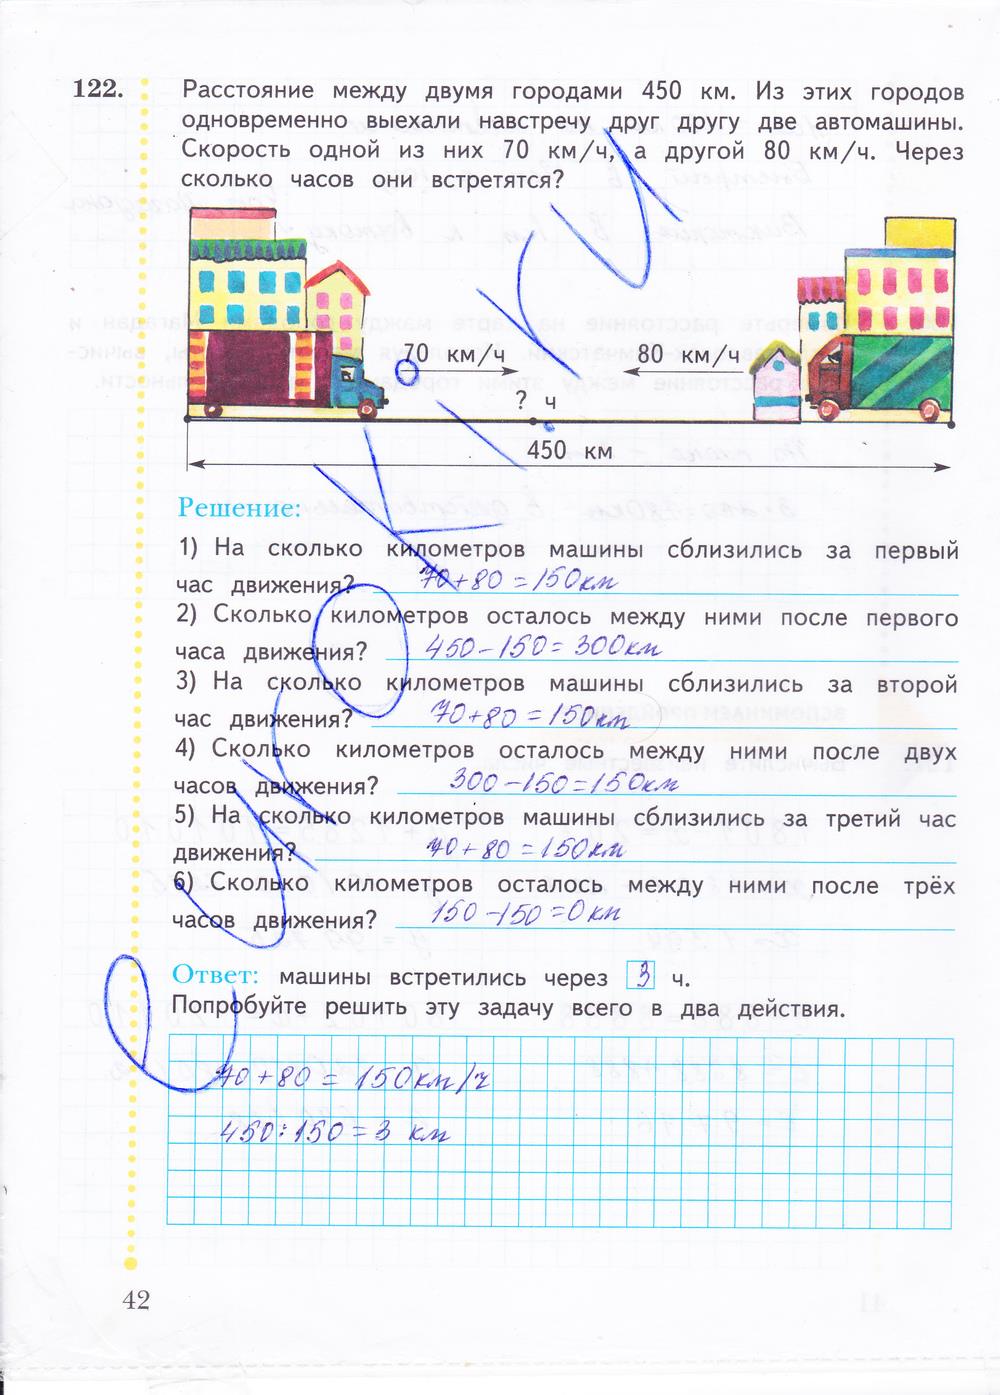 122.
Расстояние между двумя городами 450 км. Из этих городов
одновременно выехали навстречу друг другу две автомашины.
Скорость одной из них 70 км/ч, а другой 80 км/ч. Через
сколько часов они встретятся?
70 км/ч
80 км/ч
? ч
450 км
Решение:
1) На сколько километров машины сблизились за первый
час движения? 70+80=150км
2) Сколько километров осталось между ними после первого
часа движения? 450-150=300км
3) На сколько километров машины сблизились за второй
час движения? 70+80=150км
4) Сколько километров осталось между ними после двух
часов движения? 300-150=150км
5) На сколько километров машины сблизились за третий час
движения? 70+80=150км
6) Сколько километров осталось между ними после трёх
часов движения? 150-150=0км
Ответ: машины встретились через 3 ч.
Попробуйте решить эту задачу всего в два действия.
70+80=150км/ч
450:150=3 км
42